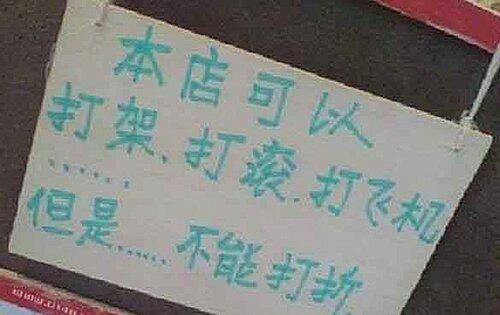 本店可以
打架、打滚、打飞机
......
但是...... 不能打折